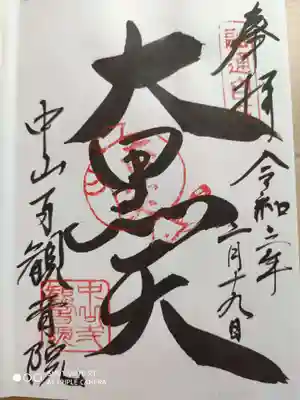 奉拝
令和二年
二月十九日
大黒天
中山寺観音院
中山寺
観音院
AI TRIPLE CAMERA